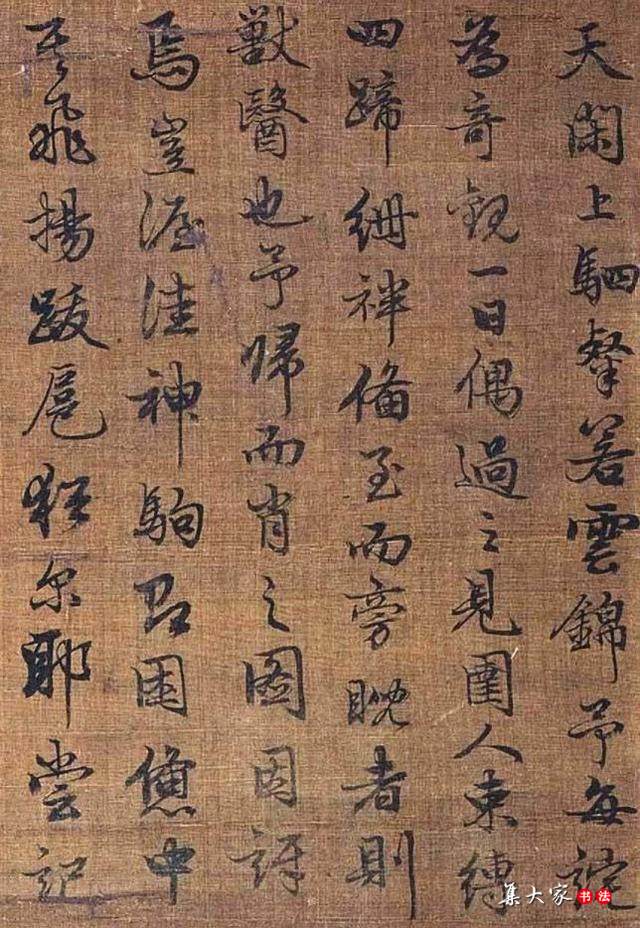 天閑上駟粲若雲錦予每詫
為奇觀一日偶過之見圉人束縛
四蹄紲絆備至而旁睨者則
獸醫也予歸而肖之圖因訝
焉豈渥洼神駒困憊中
其飛揚跋扈猶尔耶嘗記
集大家书法